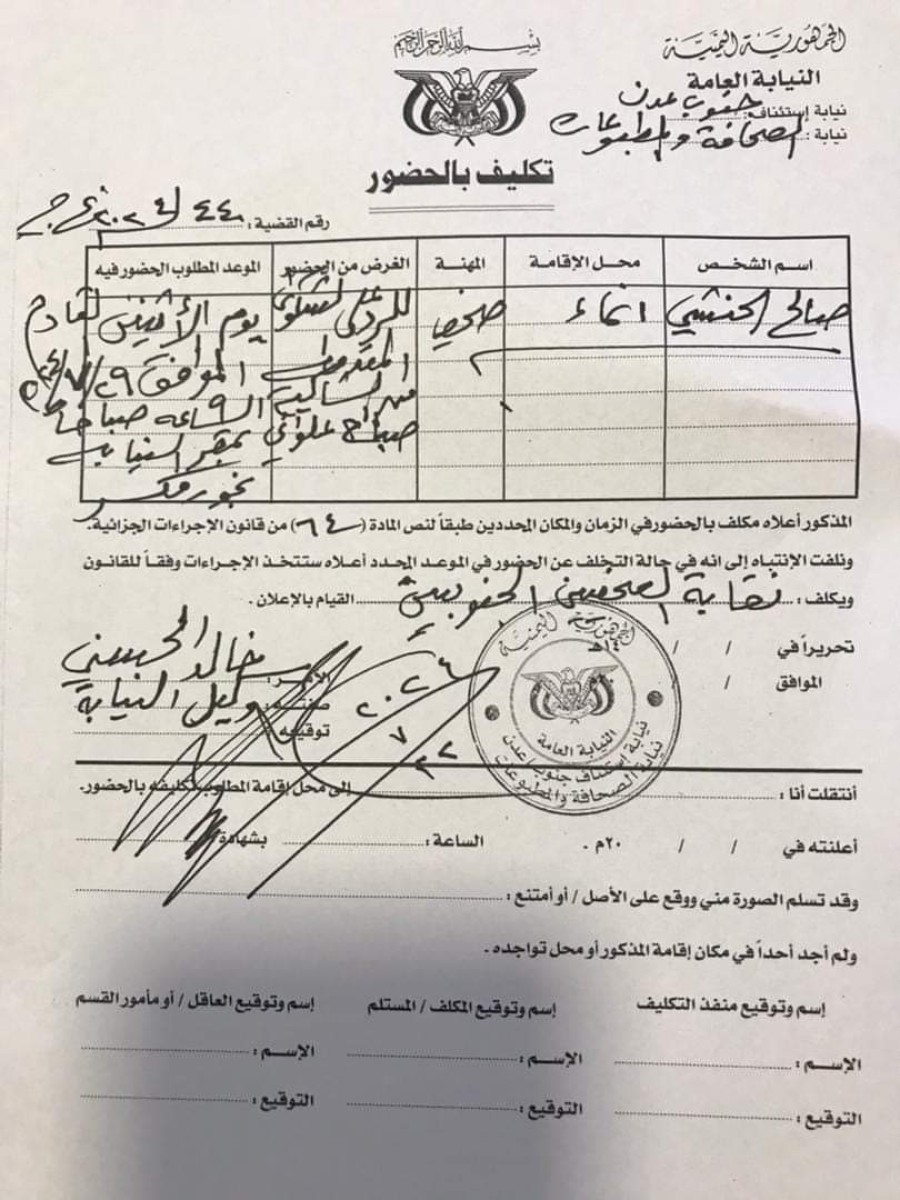 بسم الله الرحمن الرحيم
الجمهورية اليمنية
النيابة العامة
نيابة إستئناف: جنوب عدن
نيابة: الصحافة والمطبوعات
تكليف بالحضور
رقم القضية: ٤٤ / ٢٠٢٤
اسم الشخص محل الإقامة المهنة الغرض من الحضور الموعد المطلوب الحضور فيه
صالح الحنشي انماء صحفي للرد على الشكوى يوم الأثنين القادم
المقدمة الموافق ٢٩/٧/
من الشاكي الساعة ٩ صباحا
صباح علواني بمقر النيابة
بخور مكسر
المذكور أعلاه مكلف بالحضور في الزمان والمكان المحددين طبقاً لنص المادة (٦٤) من قانون الإجراءات الجزائية.
ونلفت الإنتباه إلى انه في حالة التخلف عن الحضور في الموعد المحدد أعلاه ستتخذ الإجراءات وفقاً للقانون
ويكلف: نقابة الصحفيين الجنوبيين القيام بالإعلان.
تحريراً في / / ١٤هـ
الموافق / خالد
وكيل النيابة
توقيعه:
٢٠٢٤
٧
٢٢
الجمهورية اليمنية
النيابة العامة
نيابة إستئناف جنوب / عدن
نيابة الصحافة والمطبوعات
أنتقلت أنا: إلى محل إقامة المطلوب تكليفه بالحضور.
أعلنته في / / ٢٠م. الساعة: بشهادة
وقد تسلم الصورة مني ووقع على الأصل / أو أمتنع:
ولم أجد أحداً في مكان إقامة المذكور أو محل تواجده.
إسم وتوقيع منفذ التكليف إسم وتوقيع المكلف / المستلم إسم وتوقيع العاقل / أو مأمور القسم
الإسم: الإسم: الإسم:
التوقيع: التوقيع: التوقيع: